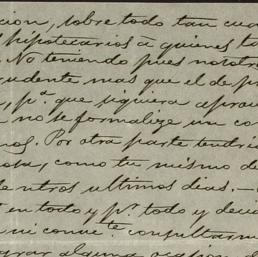 cion, sobre todo tan cua
hipotecarios á quienes ta
No teniendo pues nosotr
udente mas que el de pr
, p.ª que siquiera aprov
no se formalize un co
nos. Por otra parte tendri
osa, como tu mismo de
dentros ultimos dias. —
en todo y p.r todo y deci
ni conve.te consultarm
grar alguna